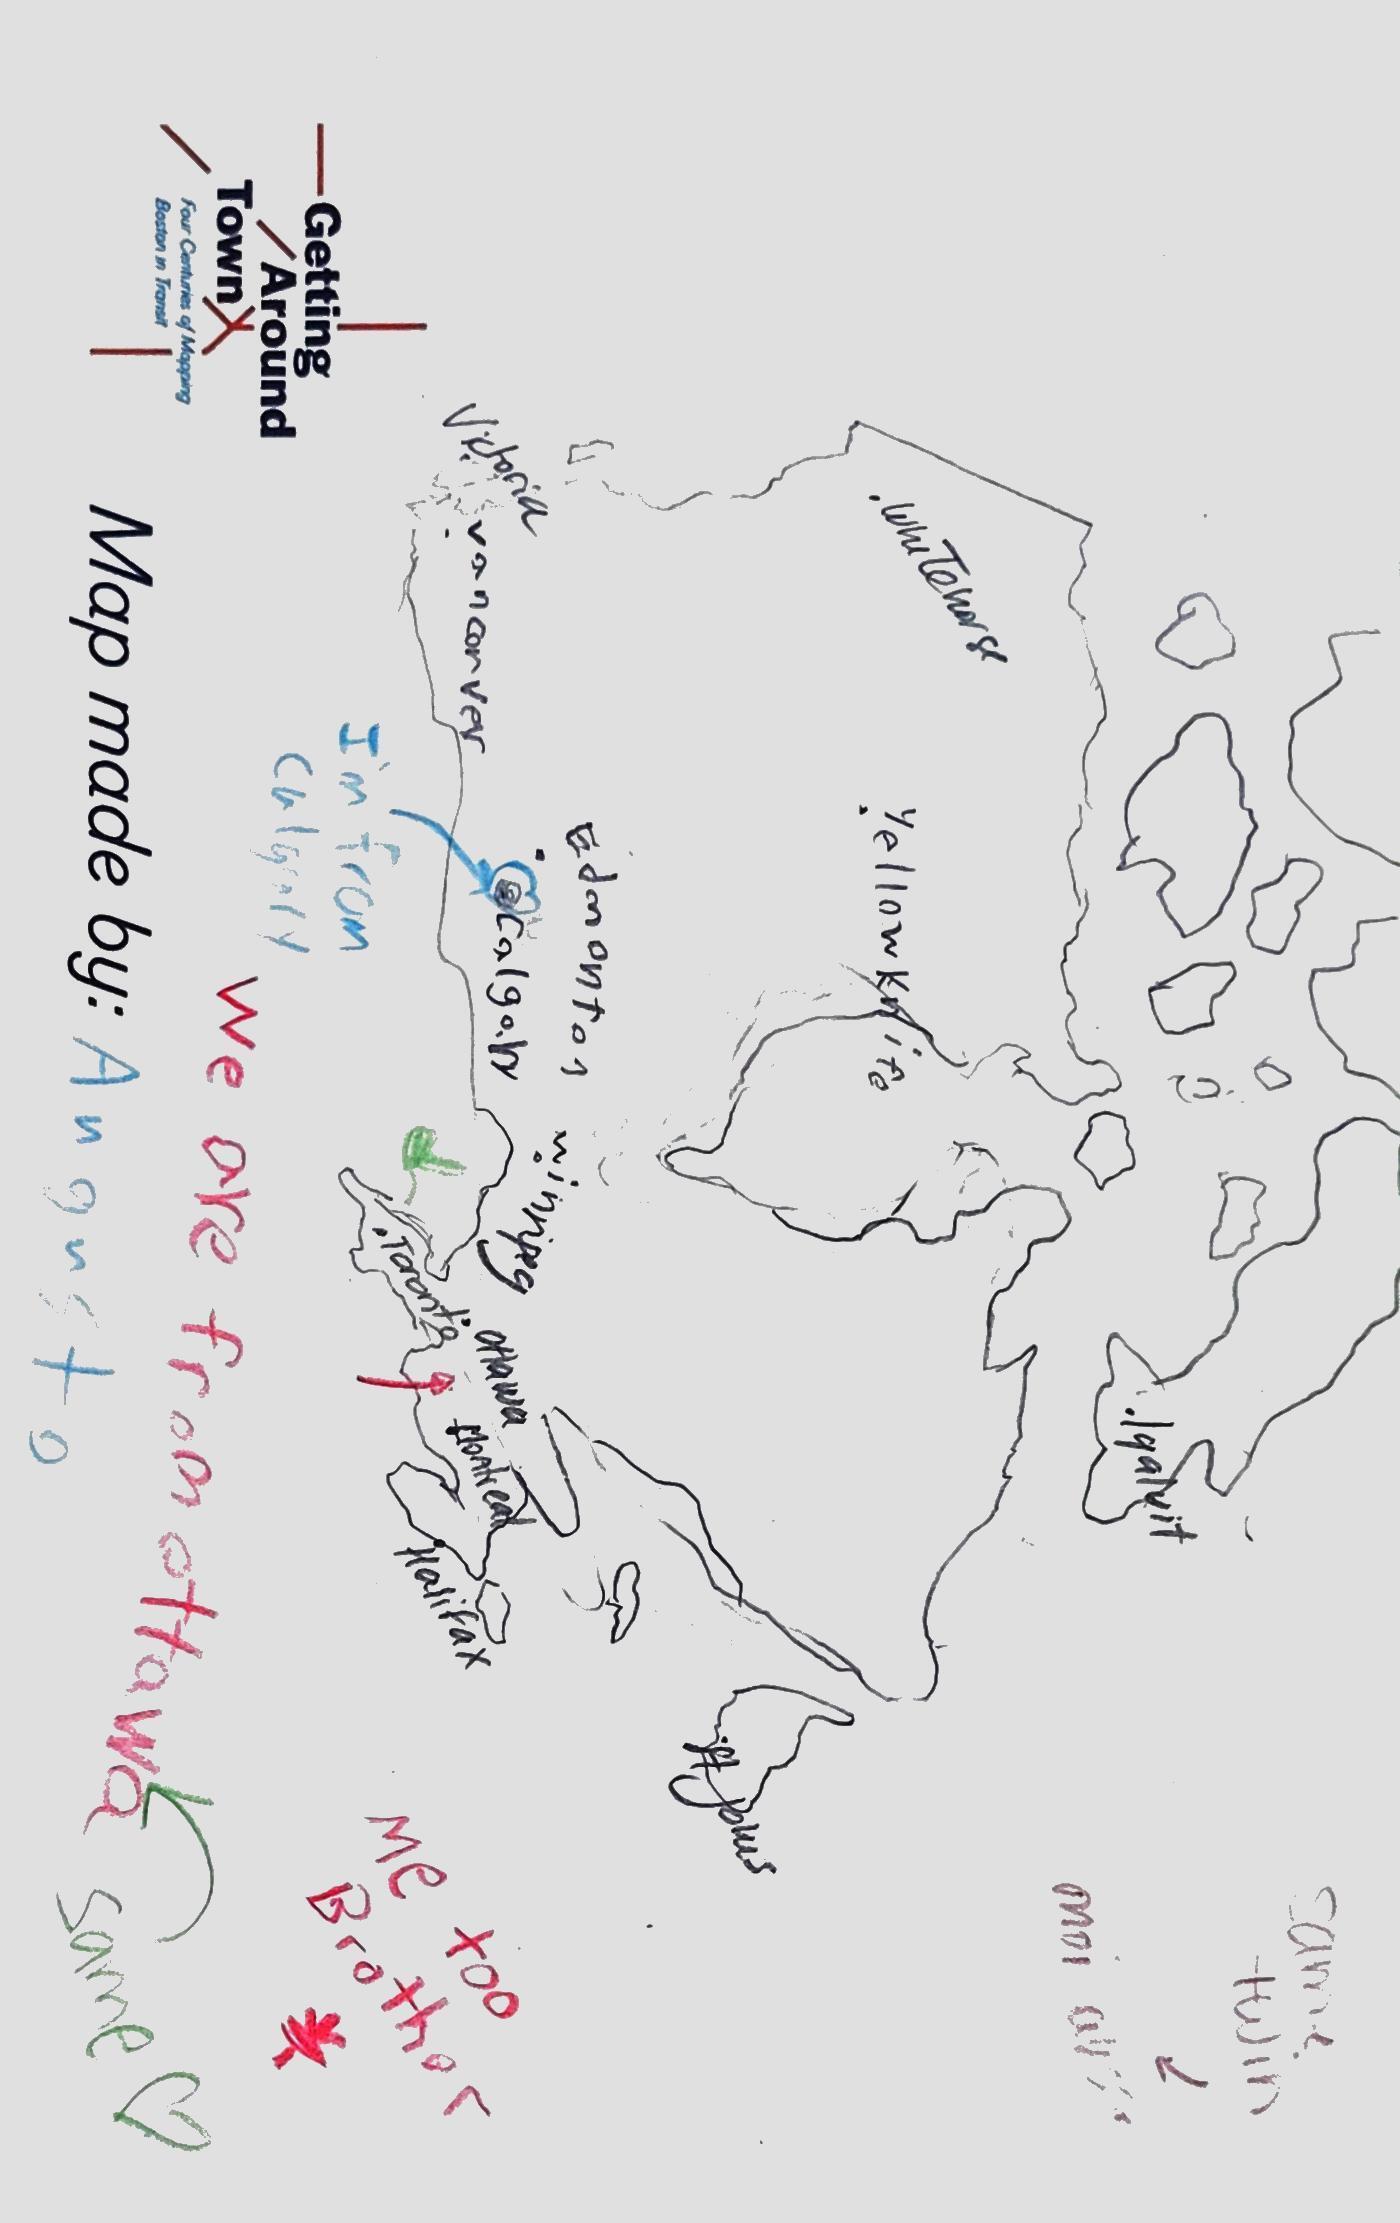 same
twin
moi aussi
Iqaluit
WhiTehorse
Yellowknife
st Johns
Edmonton
Calgary
winnipeg
Victoria
vanconver
ottawa
Montreal
Toronto
Halifax
I'm from
Calgary
Me too
Brother
We are from ottawa
same
Getting
Around
Town
Four Centuries of Mapping
Boston in Transit
Map made by: Augusto